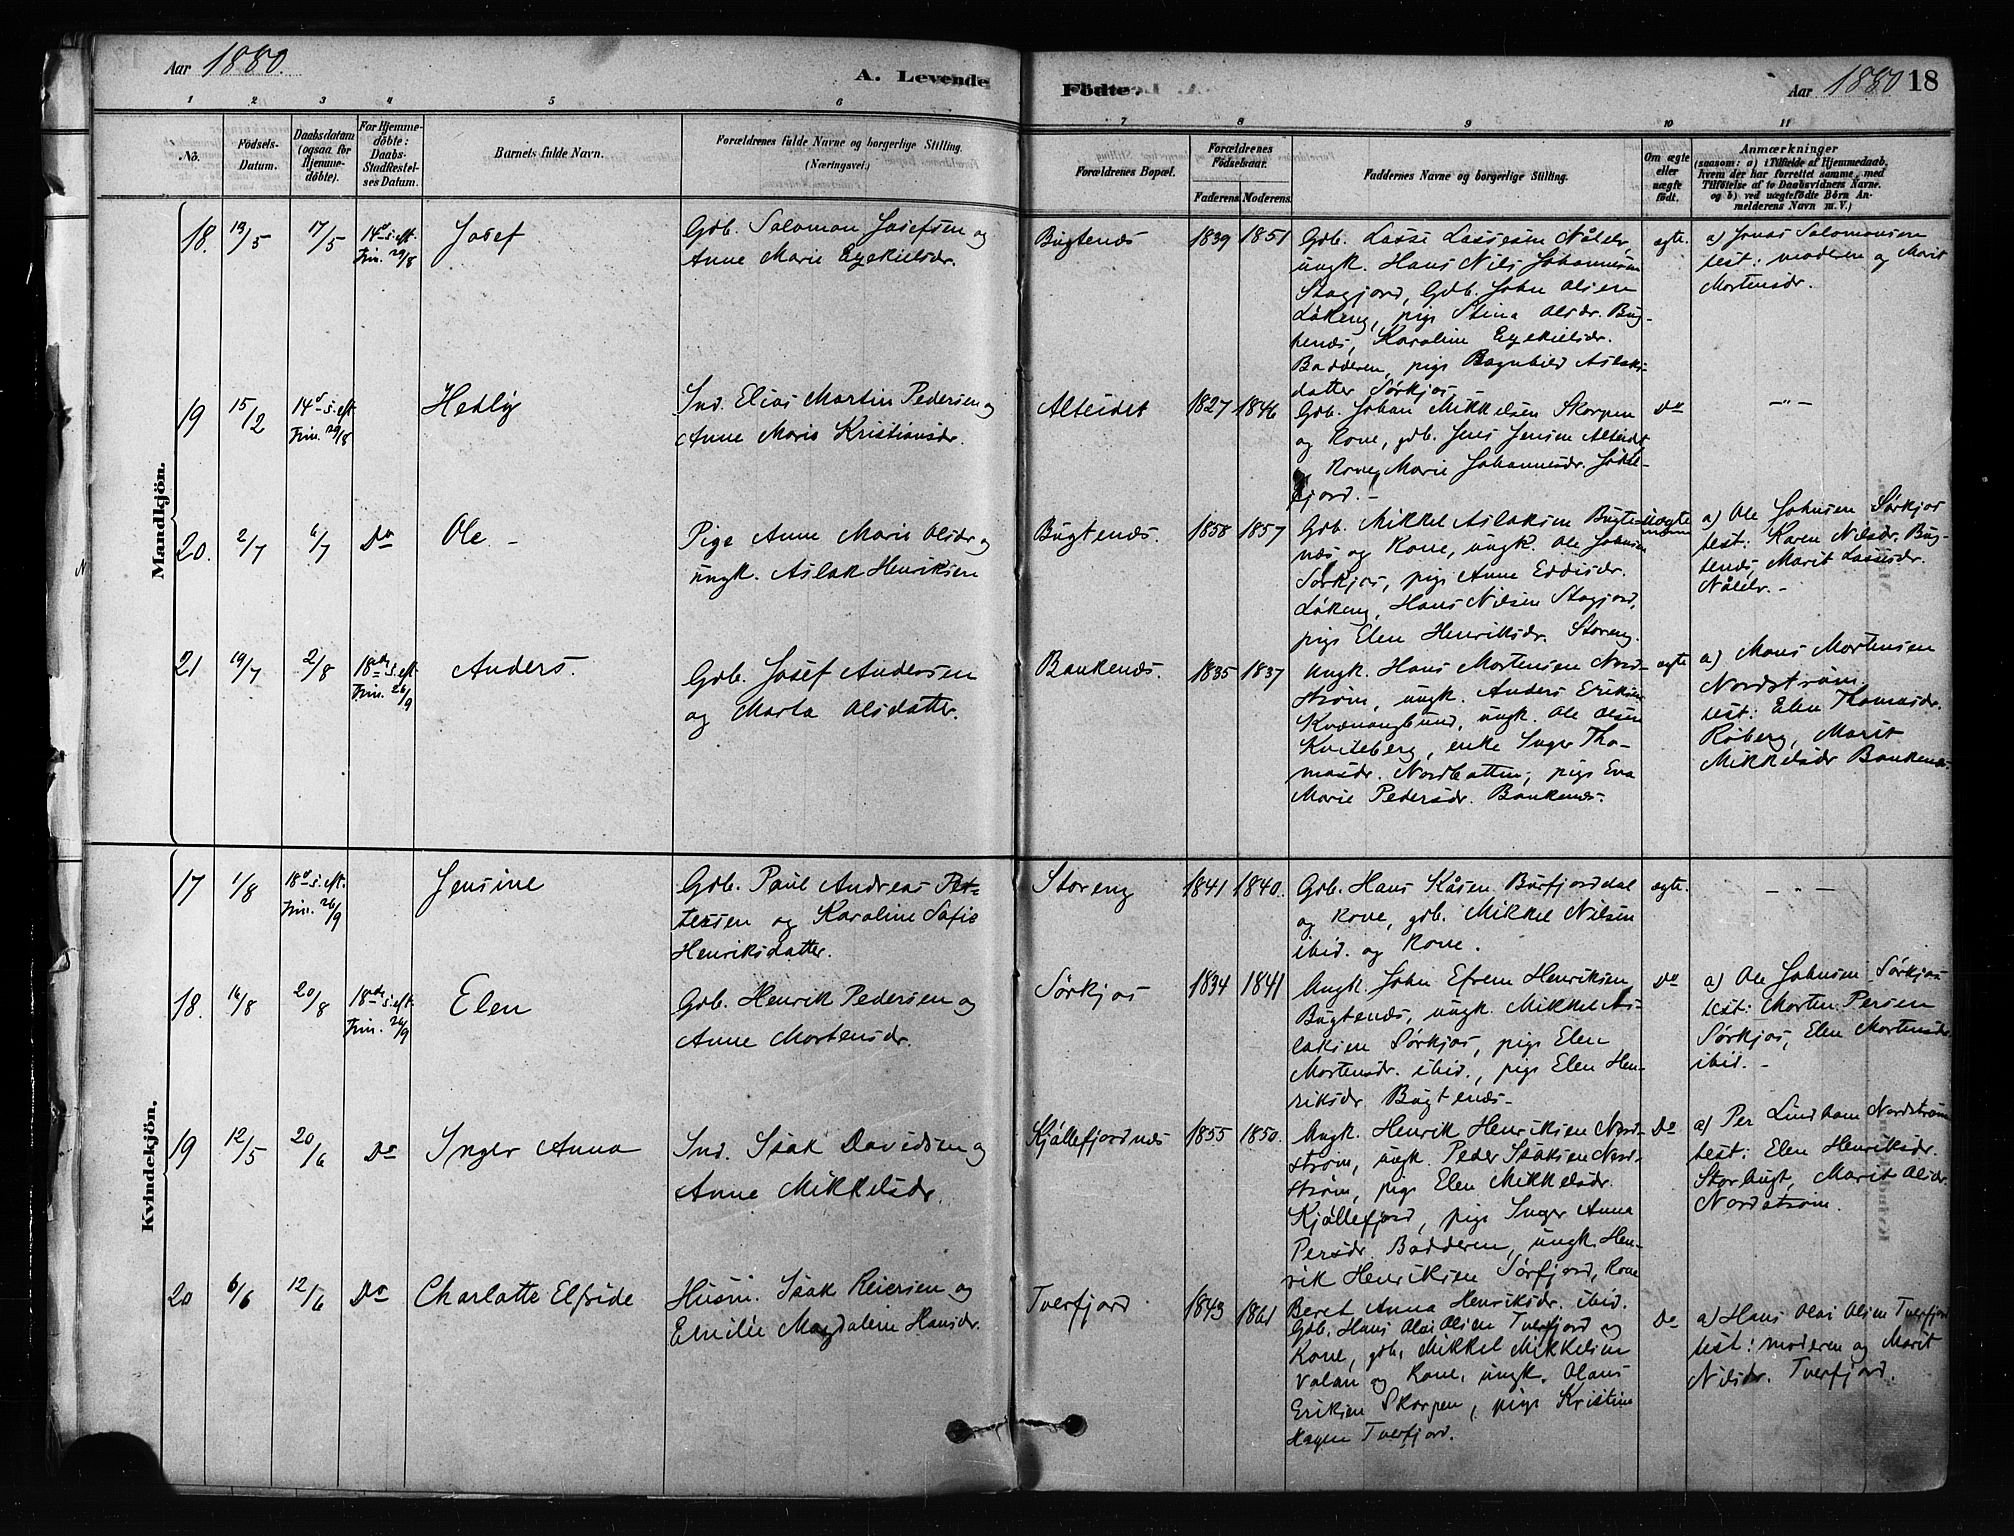 Aar 1880.
A. Levende
Födte.
Aar 1880 18
1 2 3 4 5 6 7 8 9 10 11
No.
Födsels-
Datum.
Daabsdatum
(ogsaa for
Hjemme-
döbte).
For Hjemme-
döbte:
Daabs-
Stadfæstel-
ses Datum.
Barnets fulde Navn.
Forældrenes fulde Navne og borgerlige Stilling.
(Næringsvei.)
Forældrenes Bopæl.
Forældrenes
Födselsaar.
Faderens Moderens.
Faddernes Navne og borgerlige Stilling.
Om ægte
eller
uægte
födt.
Anmærkninger
(saasom: a) i Tilfælde af Hjemmedaab,
hvem der har forrettet samme, med
Tilföielse af to Daabsvidners Navne.
og b) ved uægtefödte Börn An-
melderens Navn m. V.)
Mandkjön.
18. 13/5 17/5 14de s. eft.
Trin. 29/8
Josef
Gdb. Salomon Josefsen og
Anne Marie Ezekielsdr.
Bugtenæs 1839 1851
Gdb. Lasse Lassesen Nålelv,
ungk. Hans Nils Johannesen
Stagjord, Gdb. John Olsen
Løkeng, pige Stina Olsdr. Bug-
tenæs, Karoline Ezekielsdr.
Badderen, pige Ragnhild Aslaks-
datter Sørkjos.
ægte.
a) Jonas Salomonsen
test: moderen og Marit
Mortensdr.
19 15/2 14de s. eft.
Trin. 29/8
Hedlig
Ind. Elias Martin Pedersen og
Anne Maria Kristiansdr.
Alteidet 1827 1846
Gdb. Johan Mikkelsen Skorpen
og Kone, gdb. Jens Jensen Alteidet
og Kone, Marie Johannesdr. Jøkel-
fjord. -
Do
- " -
20. 2/7 6/7 Do Ole -
Pige Anne Marie Olsdr og
ungk. Aslak Henriksen
Bugtenæs. 1858 1857
Gdb. Mikkel Aslaksen Bugte-
næs og Kone, ungk. Ole Johnsen
Sørkjos, pige Anne Eddisdr.
Løkeng, Hans Nilsen Stagjord,
pige Elen Henriksdr. Storeng.
uægte
a) Ole Johnsen Sørkjos
test: Karen Nilsdr. Bug-
tenæs, Marit Lassesdr.
Nålelv. -
21 19/7 2/8 18de s. eft.
Trin. 26/9
Anders.
Gdb. Josef Andersen
og Marta Olsdatter.
Bankenæs. 1835 1837
Ungk. Hans Mortensen Nord-
strøm, ungk. Anders Eriksen
Kvænangbund, ungk. Ole Olsen
Kviteberg, enke Inger Tho-
masdr. Nordbotten, pige Eva
Marie Pedersdr. Bankenæs.
ægte
a) Mons Mortensen
Nordstrøm.
test: Elen Thomasdr.
Røberg, Marit
Mikkelsdr Bankenæs.
Kvindekjön.
17 1/8 18de s. eft.
Trin. 26/9
Jensine
Gdb. Paul Andreas Pet-
tersen og Karoline Sofie
Henriksdatter.
Storeng 1841 1840.
Gdb. Hans Kåsen Burfjorddal
og Kone, gdb. Mikkel Nilsen
ibid. og Kone.
ægte.
- " -
18. 16/8 20/8 18de s. eft.
Trin. 26/9
Elen
Gdb. Henrik Pedersen og
Anne Mortensdr.
Sørkjos 1834 1841
Ungk. John Efrem Henriksen
Bugtenæs, ungk. Mikkel As-
laksen Sørkjos, pige Elen
Mortensdr. ibid., pige Elen Hen-
riksdr. Bugtenæs-
Do
a) Ole Johnsen Sørkjos
test: Morten Persen
Sørkjos, Elen Mortensdr.
ibid. -
19 12/5 20/6 Do Inger Anna
Ind. Isak Davidsen og
Anne Mikkelsdr.
Kjøllefjordnæs 1855 1850.
Ungk. Henrik Henriksen Nord-
strøm, ungk. Peder Isaksen Nord-
strøm, pige Elen Mikkelsdr.
Kjøllefjord, pige Inger Anna
Persdr. Badderen, ungk. Hen-
rik Henriksen Sørfjord, Kone
Beret Anna Henriksdr. ibid.
Do
a) Per Lindham Nordstrøm
test: Elen Henriksdr.
Storbugt, Marit Olsdr.
Nordstrøm.
20 6/6 12/6 Do Charlotte Elfride
Husm. Isak Reiersen og
Emilie Magdaline Hansdr.
Tverfjord. 1843 1861
Gdb. Hans Olai Olsen Tverfjord og
Kone, gdb. Mikkel Mikkelsen
Valan og Kone, ungk. Olaus
Eriksen Skorpen, pige Kristine
Hagen Tverfjord.
Do
a) Hans Olai Olsen Tverfjord
test: moderen og Marit
Nilsdr. Tverfjord.